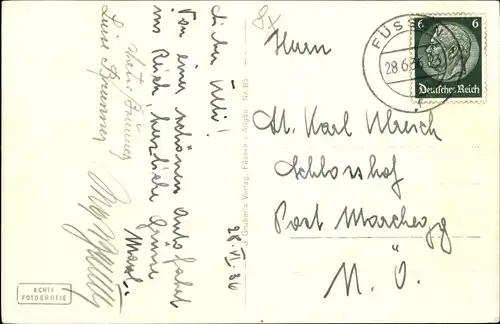 Lieber Ulli!
Von einer schönen Autofahrt
ins Reich, herzliche Grüße
28. VI. 36
Luise Brunner
J. Gruber's Verlag, Füssen i. Allgäu Nr. 85
ECHTE
FOTOGRAFIE
FÜSSEN
28.6.36
6 6
Deutsches Reich
Herrn
Karl Ulrich
Schlosshof
Post Marchegg
N. Ö.